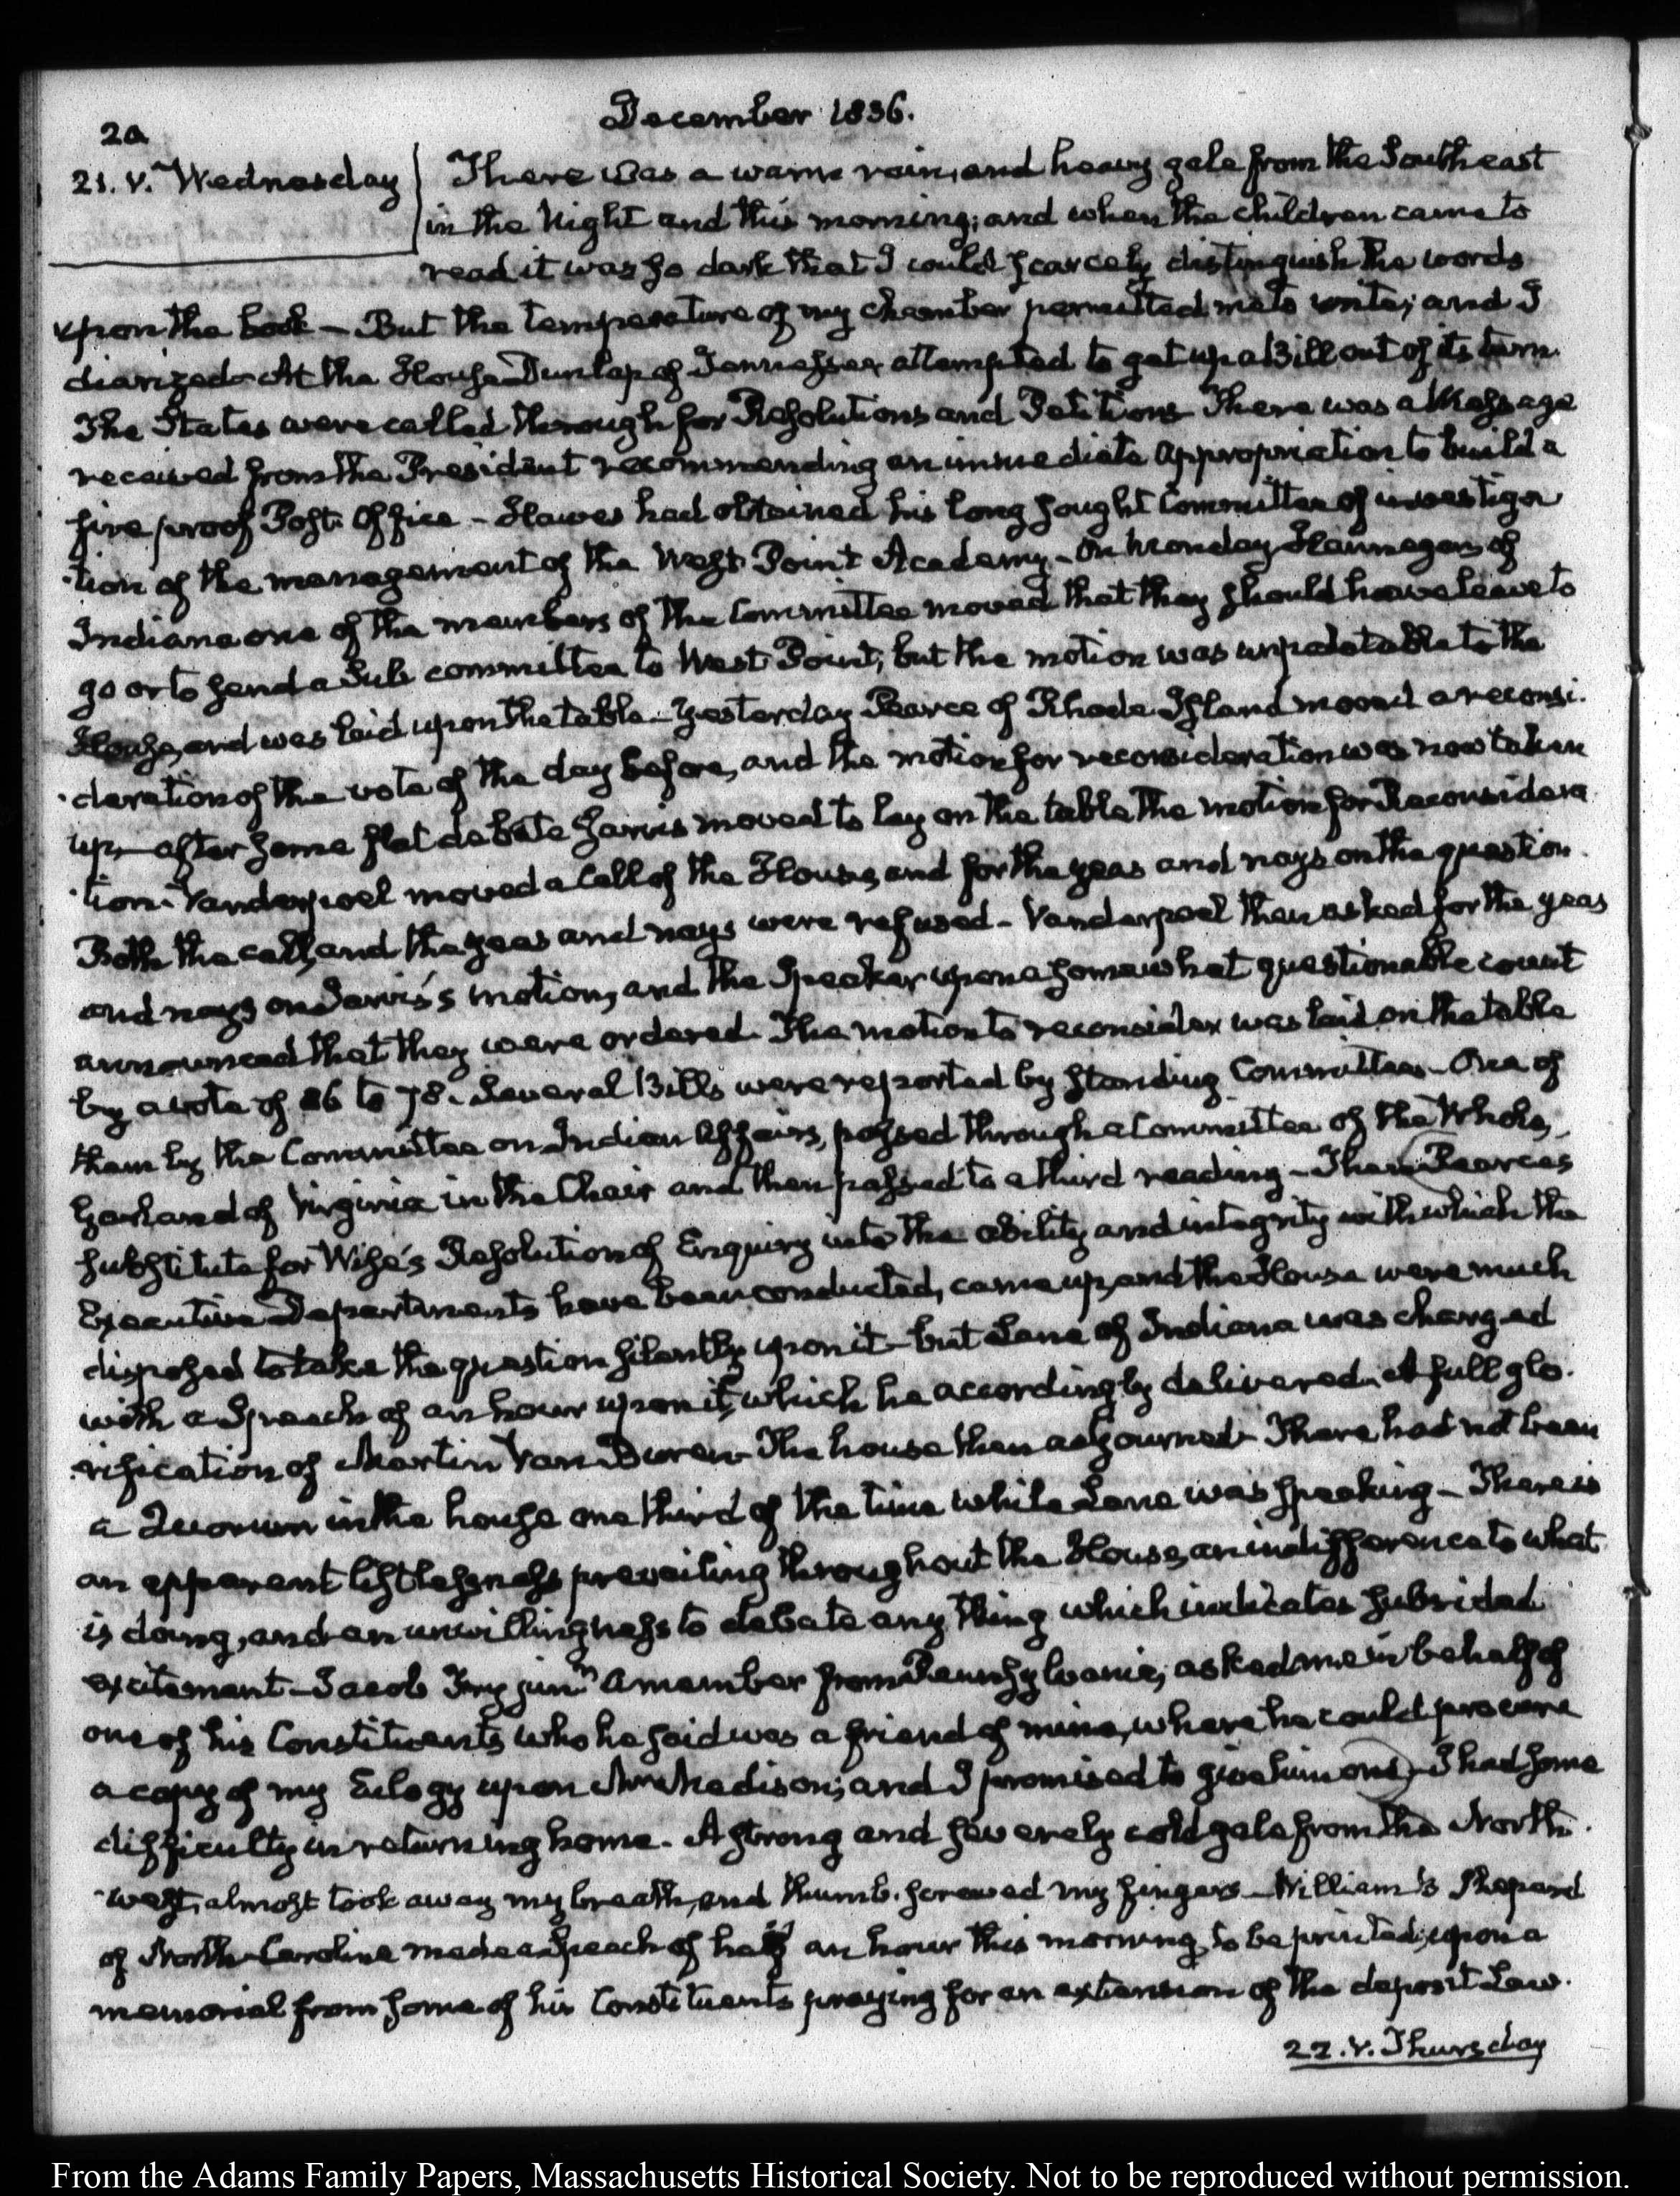 December 1836.
20
21. V. Wednesday
There was a warm rain, and heavy gale from the Southeast
in the Night and this morning; and when the children came to
read it was so dark that I could scarcely distinguish the words
upon the book — But the temperature of my chamber permitted me to write; and I
diarized. At the House Dunlap of Tennessee attempted to get up a Bill out of its turn.
The States were called through for Resolutions and Petitions There was a Message
received from the President recommending an immediate appropriation to build a
fire proof Post Office — Hawes had obtained his long sought Committee of investiga
tion of the management of the West Point Academy — On Monday Hannegan of
Indiana one of the members of the Committee moved that they should have leave to
go or to send a Sub committee to West Point; but the motion was unpalatable to the
House, and was laid upon the table — Yesterday Pearce of Rhode Island moved a reconsi-
-deration of the vote of the day before, and the motion for reconsideration was now taken
up — after some flat debate Jarvis moved to lay on the table the motion for Reconsidera
-tion. Vanderpoel moved a Call of the House, and for the yeas and nays on the question.
Both the call, and the yeas and nays were refused — Vanderpoel then asked for the yeas
and nays on Jarvis's motion, and the Speaker upon a somewhat questionable count
announced that they were ordered. The motion to reconsider was laid on the table
by a vote of 86 to 78. Several Bills were reported by standing Committees — One of
them by the Committee on Indian Affairs, passed through a Committee of the Whole,
Garland of Virginia in the Chair and then passed to a third reading — Then Pearce's
substitute for Wise's Resolution of Enquiry into the ability and integrity with which the
Executive Departments have been conducted, came up, and the House were much
disposed to take the question silently upon it — but Lane of Indiana was charged
with a Speech of an hour upon it, which he accordingly delivered. A full glo-
-rification of Martin Van Buren — The house then adjourned — There had not been
a Quorum in the house one third of the time while Lane was speaking — There is
an apparent listlessness prevailing throughout the House, an indifference to what
is doing, and an unwillingness to debate any thing which indicates subsided
excitement — Jacob Fry junr. a member from Pennsylvania, asked me in behalf of
one of his Constituents who he said was a friend of mine, where he could procure
a copy of my Eulogy upon Mr Madison; and I promised to give him one — I had some
difficulty in returning home. A strong and severely cold gale from the North-
-west, almost took away my breath, and thumb-screwed my fingers — William B Shepard
of North-Carolina made a Speech of half an hour this morning, to be printed; upon a
memorial from some of his Constituents praying for an extension of the deposit Law.
22. V. Thursday
From the Adams Family Papers, Massachusetts Historical Society. Not to be reproduced without permission.